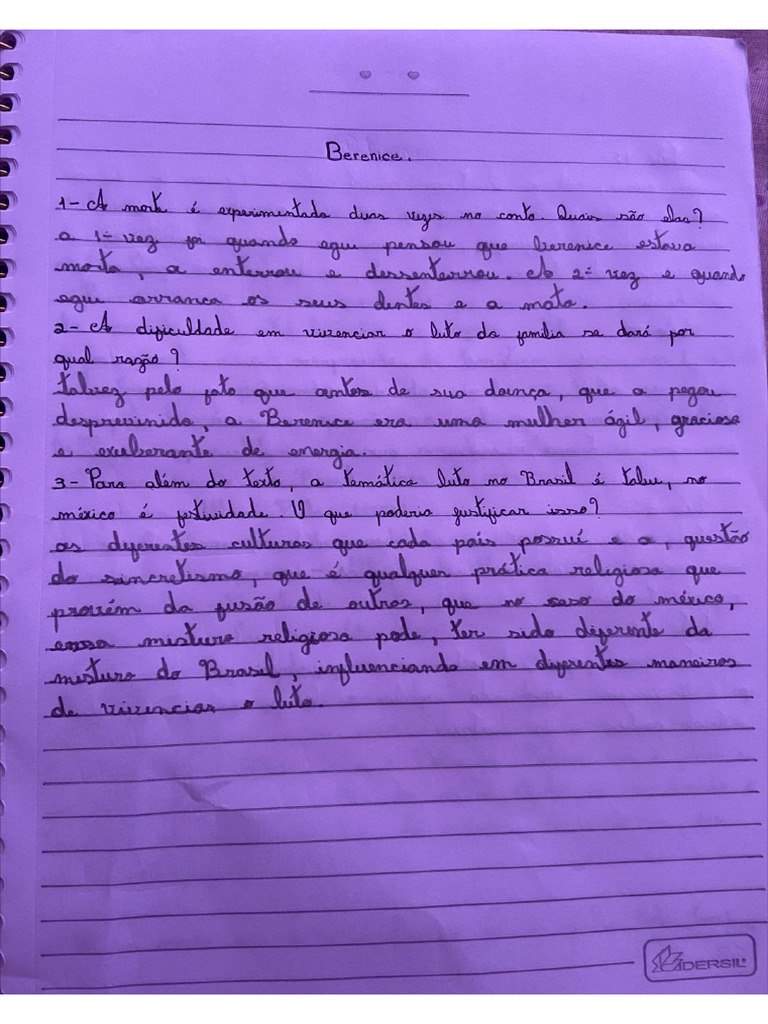 Berenice.
1- A morte é experimentada duas vezes no conto. Quais são elas?
a 1ª vez foi quando egeu pensou que berenice estava
morta, a enterrou e dessenterrou. A 2ª vez e quando
egeu arranca os seus dentes e a mata.
2- A dificuldade em vivenciar o luto da familia se dará por
qual razão?
talvez pelo fato que antes de sua doença, que a pegou
desprevinida, a Berenice era uma mulher ágil, graciosa
e exuberante de energia.
3- Para além do texto, a temática luto no Brasil é tabu, no
méxico é festividade. O que poderia justificar isso?
as diferentes culturas que cada país possuí e a, questão
do sincretismo, que é qualquer prática religiosa que
provém da fusão de outras, que no caso do méxico,
essa mistura religiosa pode, ter sido diferente da
mistura do Brasil, influenciando em diferentes maneiras
de vivenciar o luto.
IDERSIL